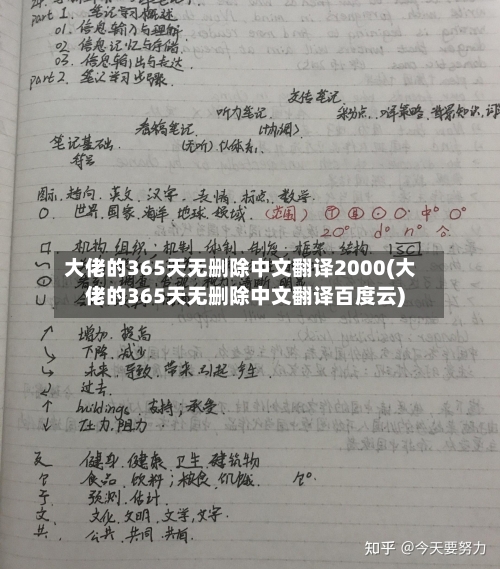 part 1. 笔记学习概述
01. 信息输入与理解
02. 信息记忆与存储
03. 信息输出与表达
part 2. 笔记学习步骤.
交传笔记.
听力笔记.
看稿笔记.
笔记基础.
符号
(无听) 体系.
图标, 趋向, 英文, 汉字, 表情, 标点, 数学.
O. 世界, 国家, 海洋, 地球, 领域. (范围)
口 机构, 组织; 机制, 体制, 制度; 框架, 结构.
大佬的365天无删除中文翻译2000(大
佬的365天无删除中文翻译百度云)
↗ 增加, 提高
↘ 下降, 减少
→ 未来, 导致, 带来, 引起, 产生
过去.
↑ buildings 支持; 承受
↓ 压力, 阻力
健身, 健康, 卫生, 建筑物
食品, 饮料; 粮食, 饥饿.
予 预测, 估计.
文. 文化, 文明, 文学, 文字.
共. 公共, 共同, 共商.
知乎 @今天要努力